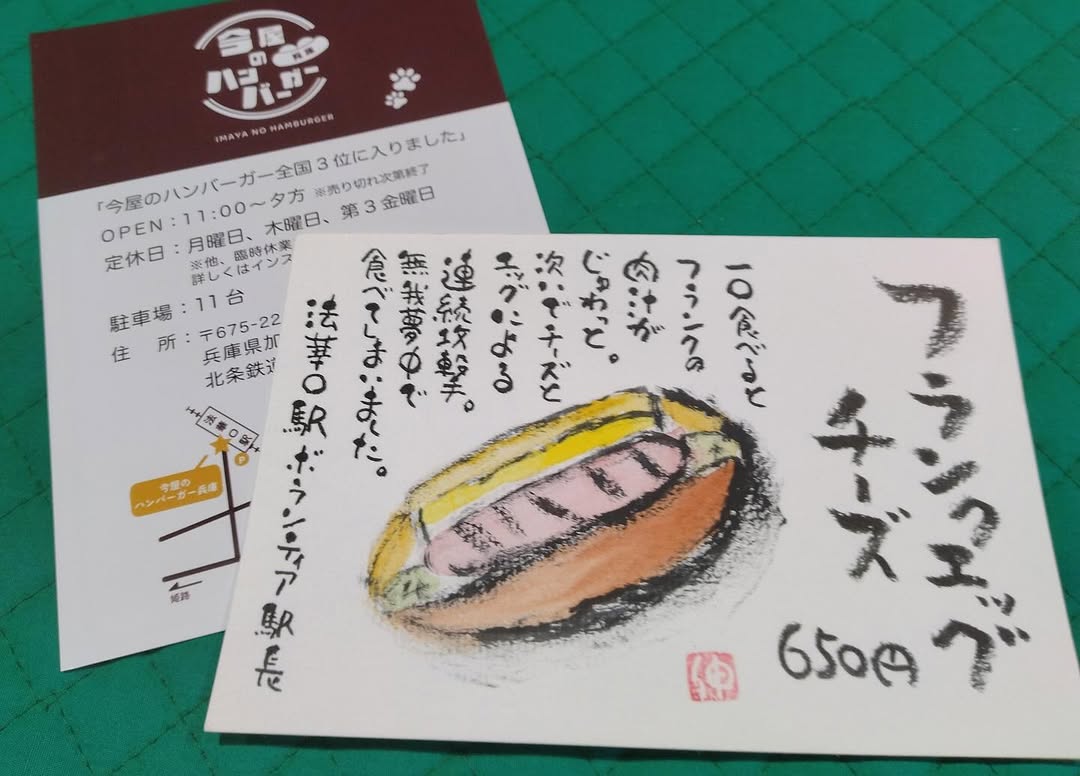 今屋
の
ハン
バーガー
兵庫
IMAYA NO HAMBURGER
「今屋のハンバーガー全国3位に入りました」
OPEN：11:00〜夕方 ※売り切れ次第終了
定休日：月曜日、木曜日、第3金曜日
※他、臨時休業
詳しくはインス
駐車場：11台
住 所：〒675-22
兵庫県加
北条鉄道
法華口駅
P
今屋の
ハンバーガー兵庫
姫路
フランクエッグ
チーズ
650円
一口食べると
フランクの
肉汁が
じゅわっと。
次いでチーズと
エッグによる
連続攻撃。
無我夢中で
食べてしまいました。
法華口駅ボランティア駅長